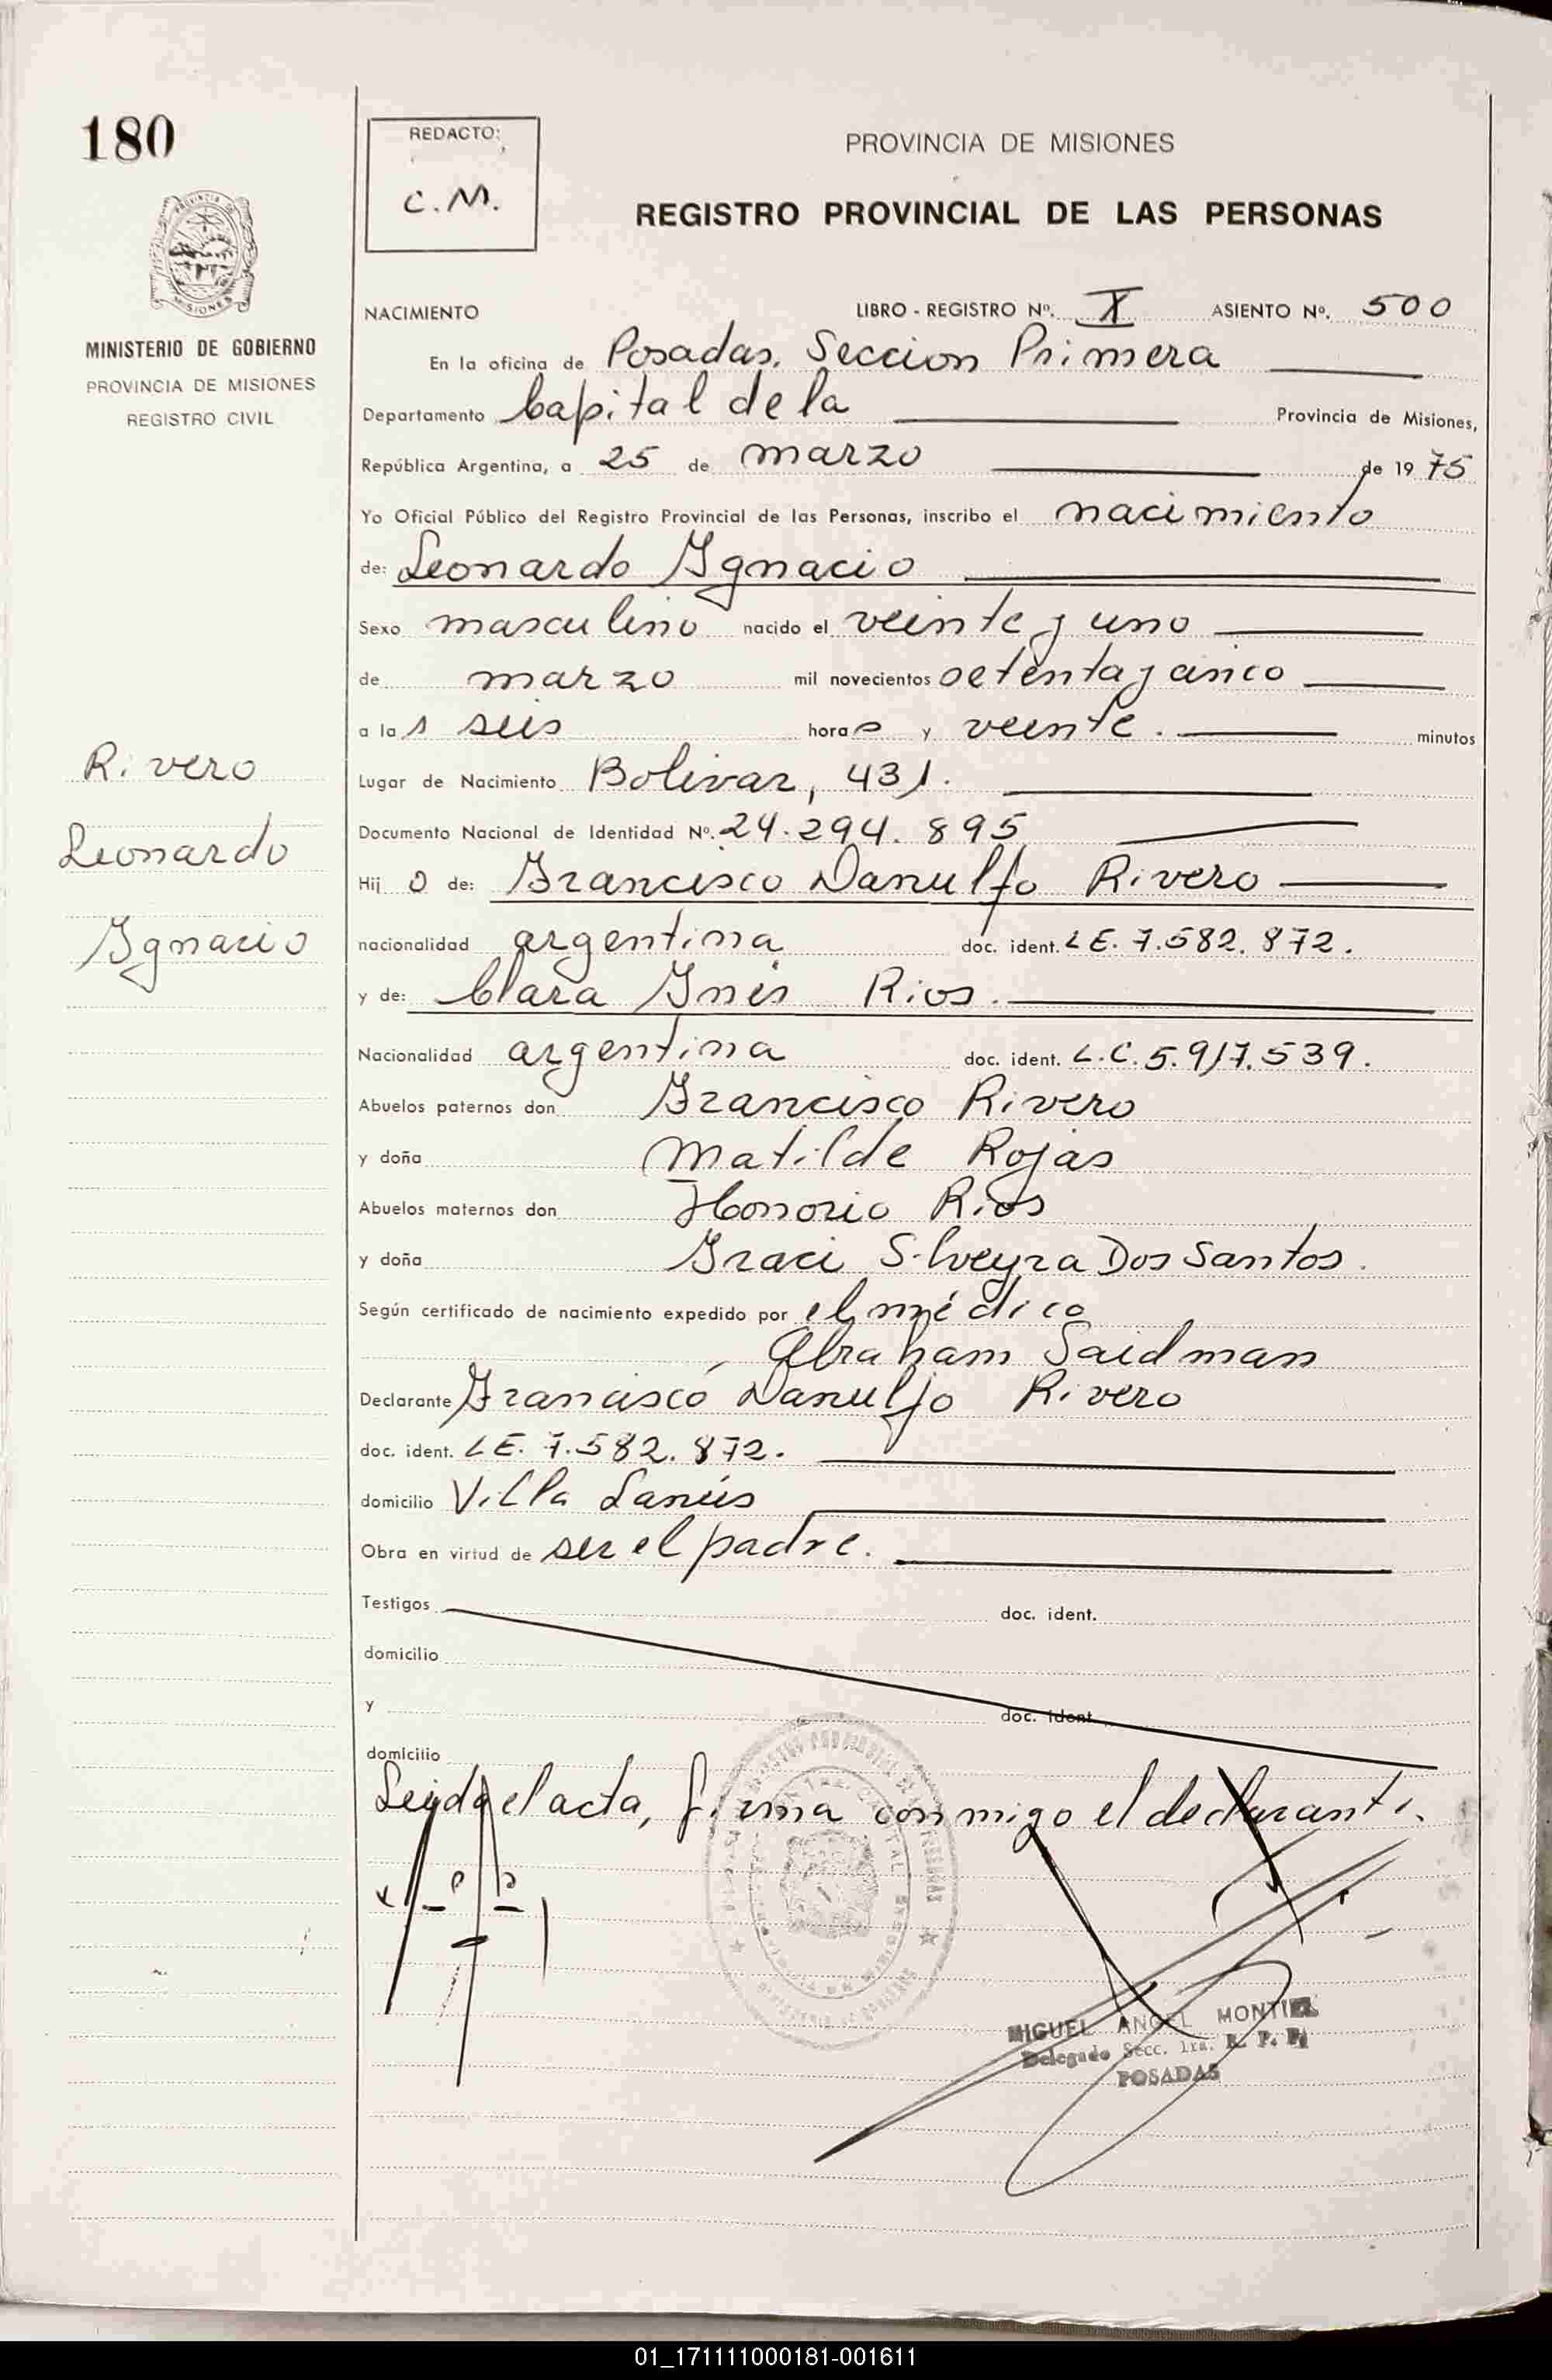 180
REDACTO:
C.M.
PROVINCIA DE MISIONES
REGISTRO PROVINCIAL DE LAS PERSONAS
MISIONES
MINISTERIO DE GOBIERNO
PROVINCIA DE MISIONES
REGISTRO CIVIL
NACIMIENTO LIBRO - REGISTRO Nº. I ASIENTO Nº. 500
En la oficina de Posadas, Seccion Primera
Departamento Capital de la Provincia de Misiones,
República Argentina, a 25 de marzo de 19 75
Yo Oficial Público del Registro Provincial de las Personas, inscribo el nacimiento
de: Leonardo Ignacio
Sexo masculino nacido el veinte y uno
de marzo mil novecientos setenta y cinco
a las seis horas y veinte. minutos
Rivero
Leonardo
Ignacio
Lugar de Nacimiento Bolivar, 431.
Documento Nacional de Identidad Nº. 24.294.895
Hijo de: Francisco Danulfo Rivero
nacionalidad argentina doc. ident. L.E. 7.582.872.
y de: Clara Inés Rios.
Nacionalidad argentina doc. ident. L.C. 5.917.539.
Abuelos paternos don Francisco Rivero
y doña Matilde Rojas
Abuelos maternos don Honorio Rios
y doña Iraci Silveyra Dos Santos.
Según certificado de nacimiento expedido por el médico
Abraham Saidman
Declarante Francisco Danulfo Rivero
doc. ident. L.E. 7.582.872.
domicilio Villa Lanús
Obra en virtud de ser el padre.
Testigos doc. ident.
domicilio
y doc. ident.
domicilio
Leida el acta, firma conmigo el declarante.
MIGUEL ANGEL MONTIEL
Delegado Secc. 1ra. R. P. P.
POSADAS
01_171111000181-001611